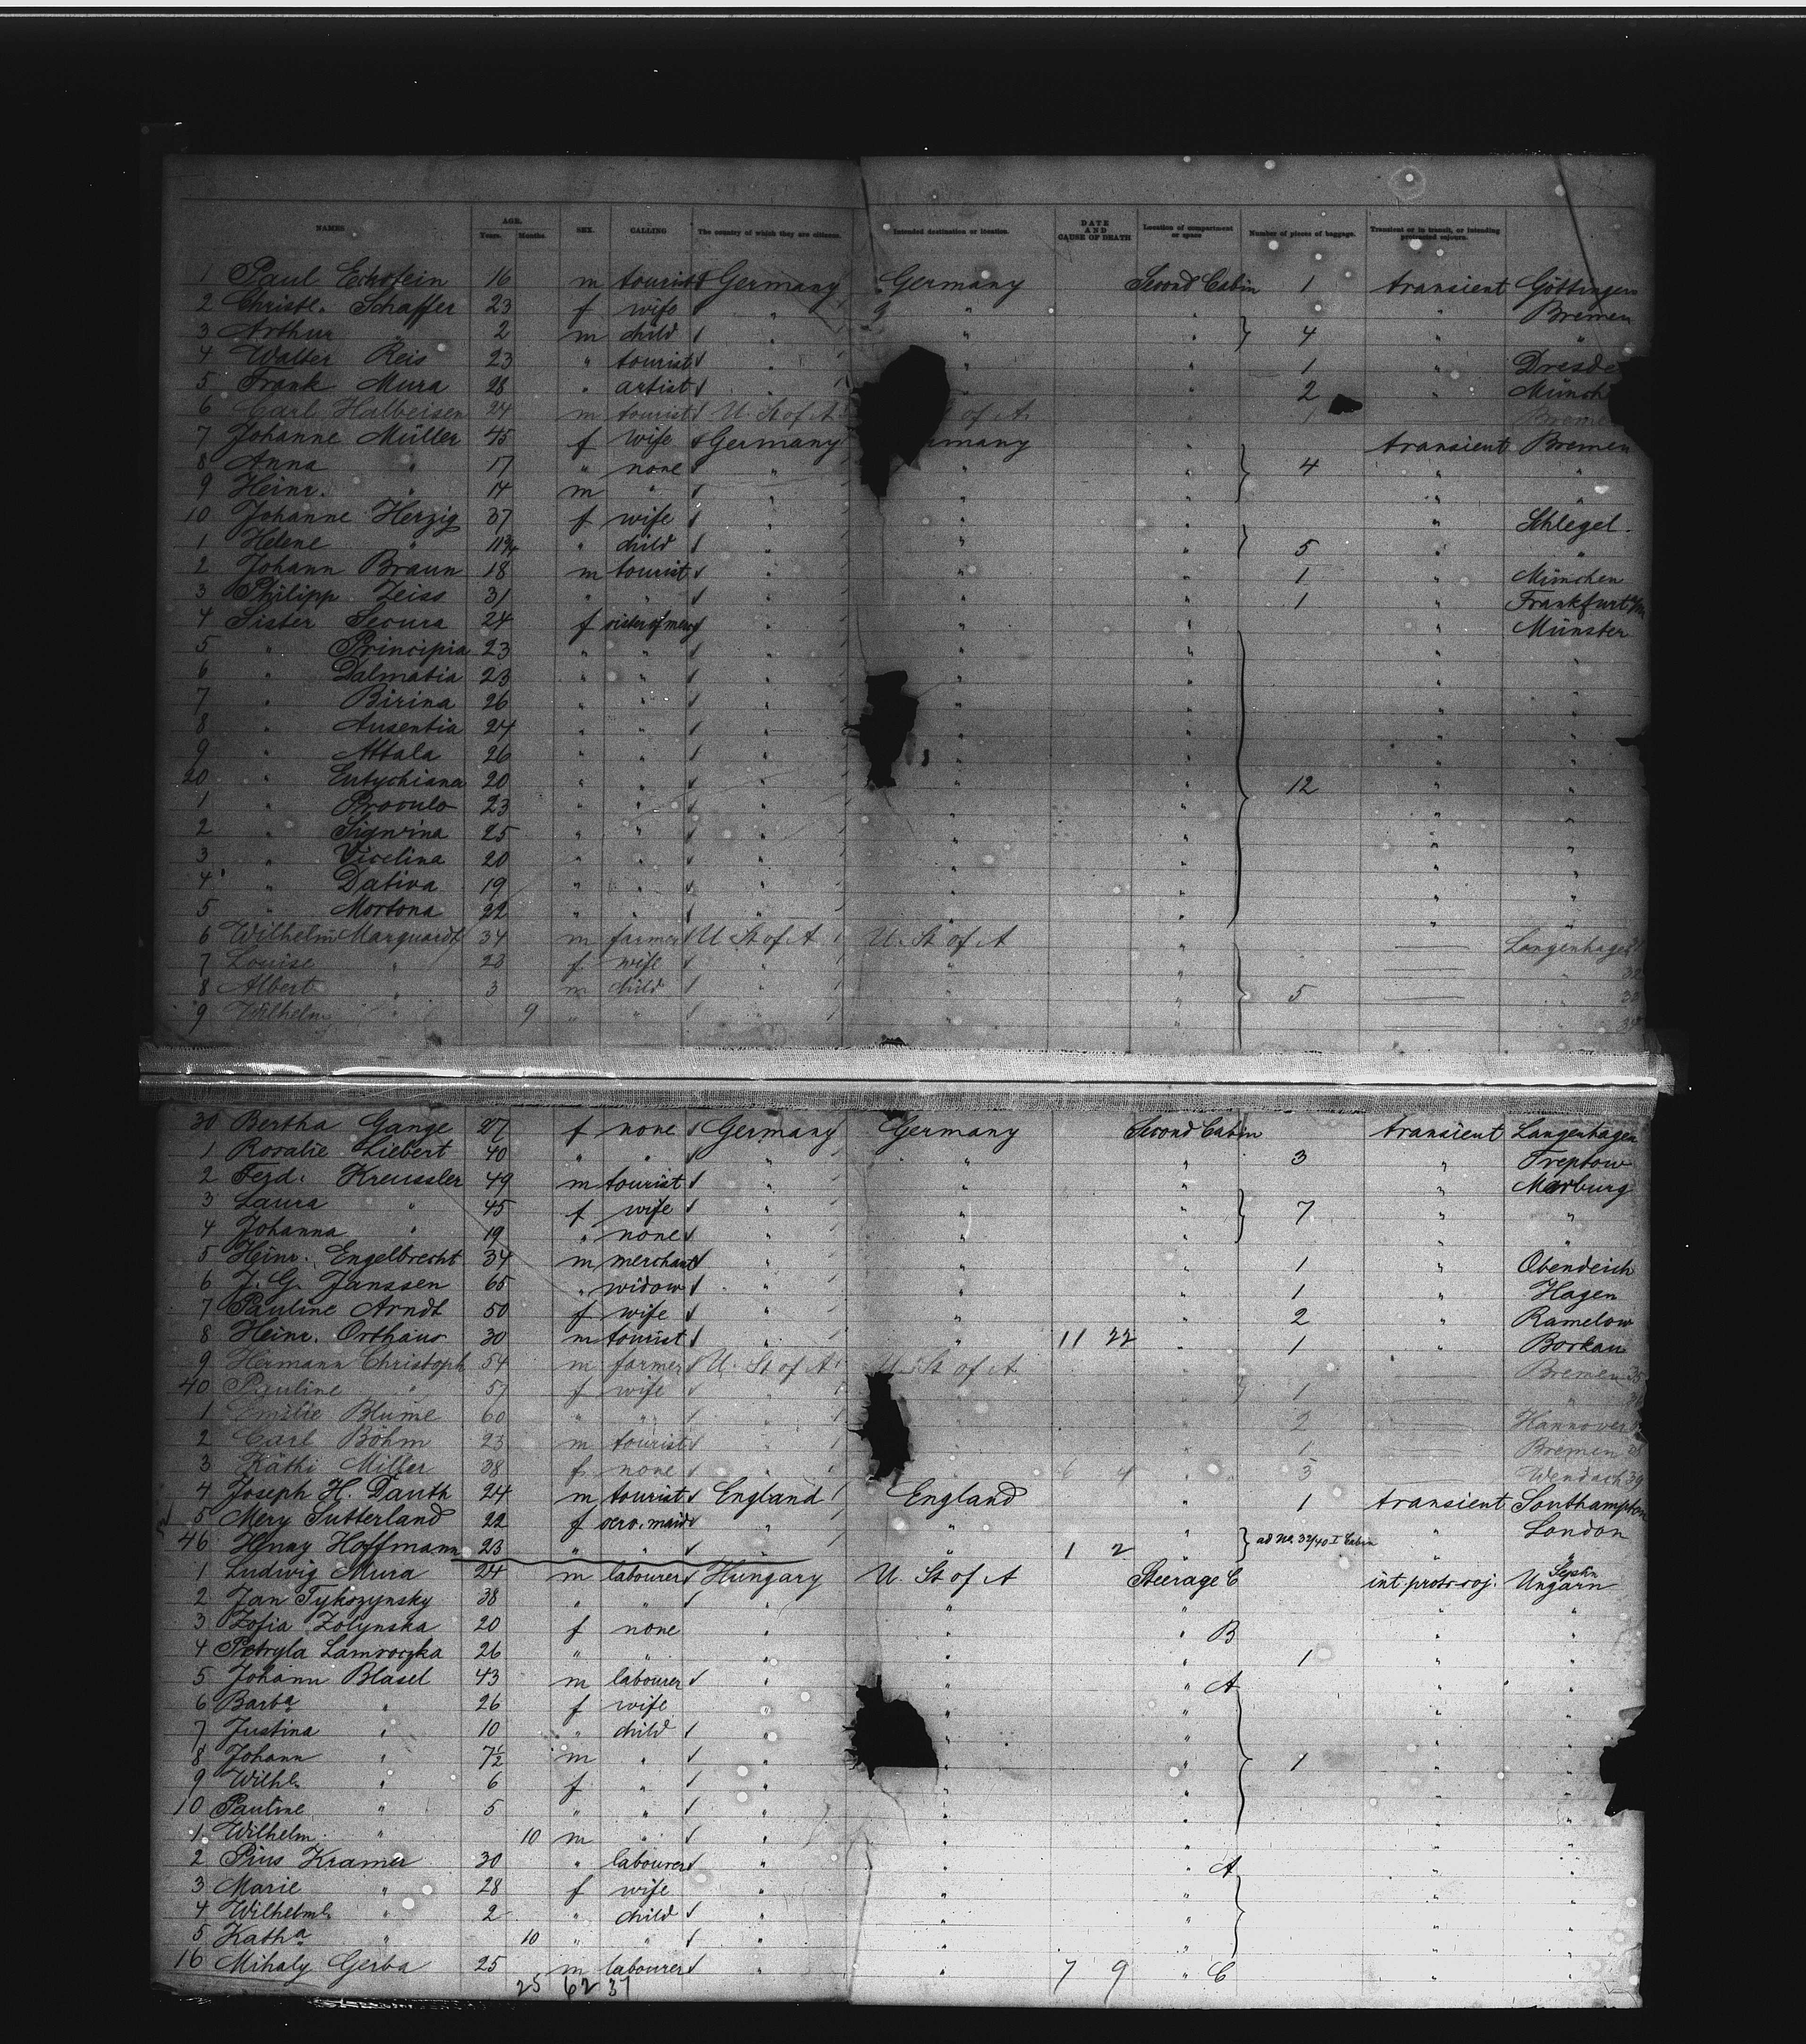 NAMES AGE. Years. Months. SEX. CALLING The country of which they are citizens. Intended destination or location. DATE AND CAUSE OF DEATH Location of compartment or space Number of pieces of baggage. Transient or in transit, or intending protracted sojourn.
1 Paul Eckstein 16 m tourist Germany Germany Second Cabin 1 transient Göttingen
2 Christe. Schaffer 23 f wife " " " " Bremen
3 Arthur " 2 m child " " " 4 " "
4 Walter Reis 23 " tourist " " " 1 " Dresde
5 Frank Mura 28 " artist " " " 2 " Münch
6 Carl Halbeisen 24 m tourist U. St of A. St of A. " 1 Breme
7 Johanne Müller 45 f wife Germany many " transient Bremen
8 Anna " 17 " none " " " 4 " "
9 Heinr. " 14 m " " " " " "
10 Johanne Herzig 37 f wife " " " " Schlegel.
1 Helene " 11¾ " child " " " 5 " "
2 Johann Braun 18 m tourist " " " 1 " München
3 Philipp Zeiss 31 " " " " " 1 " Frankfurt a/m
4 Sister Secura 24 f sister of mercy " " " " Münster
5 " Principia 23 " " " " " " "
6 " Dalmatia 23 " " " " " " "
7 " Birina 26 " " " " " " "
8 " Ausentia 24 " " " " " " "
9 " Attala 26 " " " " " " "
20 " Eutychiana 20 " " " " " 12 " "
1 " Provulo 23 " " " " " " "
2 " Signrina 25 " " " " " " "
3 " Vicelina 20 " " " " " " "
4 " Dativa 19 " " " " " " "
5 " Mortona 22 " " " " " " "
6 Wilhelm Marquardt 34 m farmer U St of A U. St of A " Langenhagen
7 Louise " 23 f wife " " " "
8 Albert " 3 m child " " " 5 "
9 Wilhelm " 9 " " " " " "
30 Bertha Gange 27 f none Germany Germany Second Cabin transient Langenhagen
1 Rosalie Liebert 40 " " " " " 3 " Treptow
2 Ferd. Kreussler 49 m tourist " " " " Marburg
3 Laura " 45 f wife " " " 7 " "
4 Johanna " 19 " none " " " " "
5 Heinr. Engelbrecht 34 m merchant " " " 1 " Obendeich
6 J. G. Janssen 65 " widow " " " 1 " Hagen
7 Pauline Arndt 50 f wife " " " 2 " Ramelow
8 Heinr. Orthaus 30 m tourist " " 11 22 " 1 " Borkau
9 Hermann Christoph 54 m farmer U. St of A U. St of A " Bremen 35
40 Pauline " 57 f wife " " " 1 "
1 Emilie Blume 60 " " " " " 2 Hannover
2 Carl Böhm 23 m tourist " " " 1 Bremen 38
3 Käthi Miller 38 f none " " 6 4 " 3 Wendach 39
4 Joseph H. Dauth 24 m tourist England England " 1 transient Southampton
5 Mery Sutterland 22 f serv. maid " " " " London
46 Henny Hoffmann 23 " " " " 1 2 " ad No. 39/40 I Cabin " "
1 Ludwig Mura 24 m labourer Hungary U. St of A Steerage C int. protr. soj. Ungarn
2 Jan Tykszynsky 38 " " " " " " "
3 Zofia Zolynska 20 f none " " " B " "
4 Petryla Lamroczka 26 " " " " " 1 " "
5 Johann Blasel 43 m labourer " " " A " "
6 Barba " 26 f wife " " " " "
7 Justina " 10 " child " " " " "
8 Johann " 7½ m " " " " 1 " "
9 Wilhe. " 6 f " " " " " "
10 Pauline " 5 " " " " " " "
1 Wilhelm " 10 m " " " " " "
2 Pius Kramer 30 " labourer " " " A " "
3 Marie " 28 f wife " " " " "
4 Wilhelme. " 2 " child " " " " "
5 Katha " 10 " " " " " " "
16 Mihaly Gerba 25 m labourer " " 7 9 " C " "
25 62 37